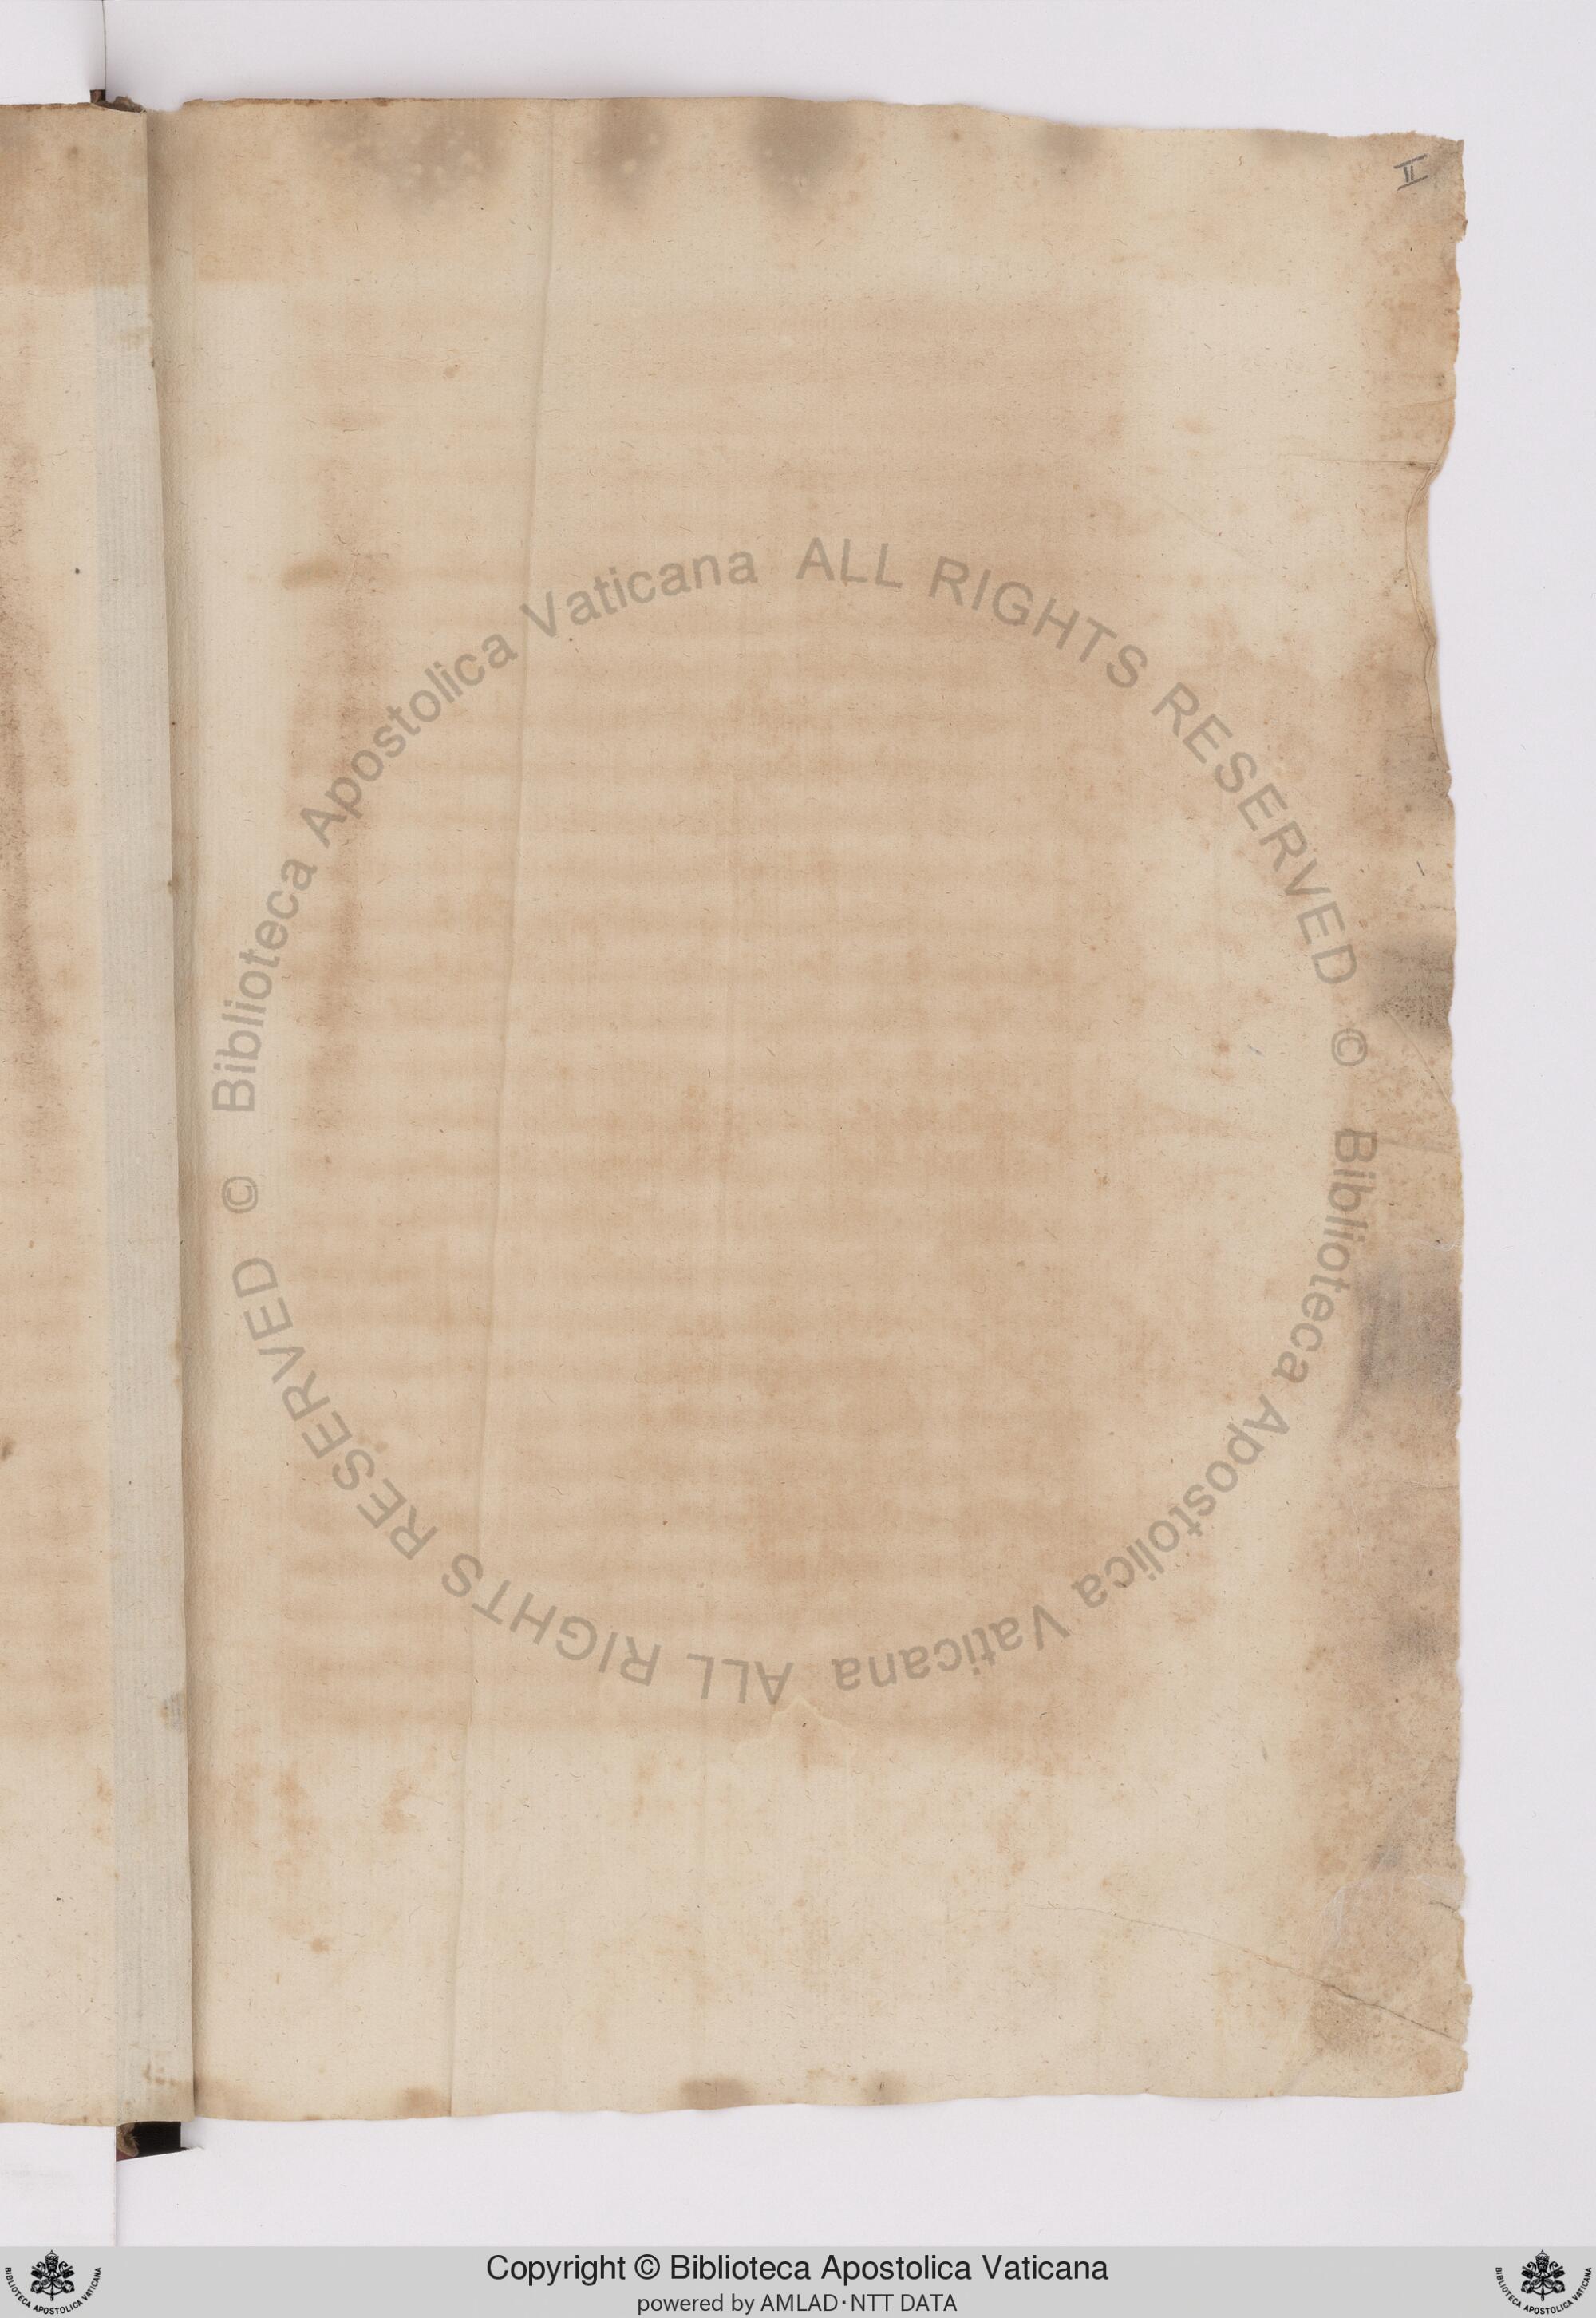 II
Biblioteca Apostolica Vaticana ALL RIGHTS RESERVED ©
Biblioteca Apostolica Vaticana ALL RIGHTS RESERVED ©
Copyright © Biblioteca Apostolica Vaticana
powered by AMLAD·NTT DATA
BIBLIOTECA APOSTOLICA VATICANA
BIBLIOTECA APOSTOLICA VATICANA